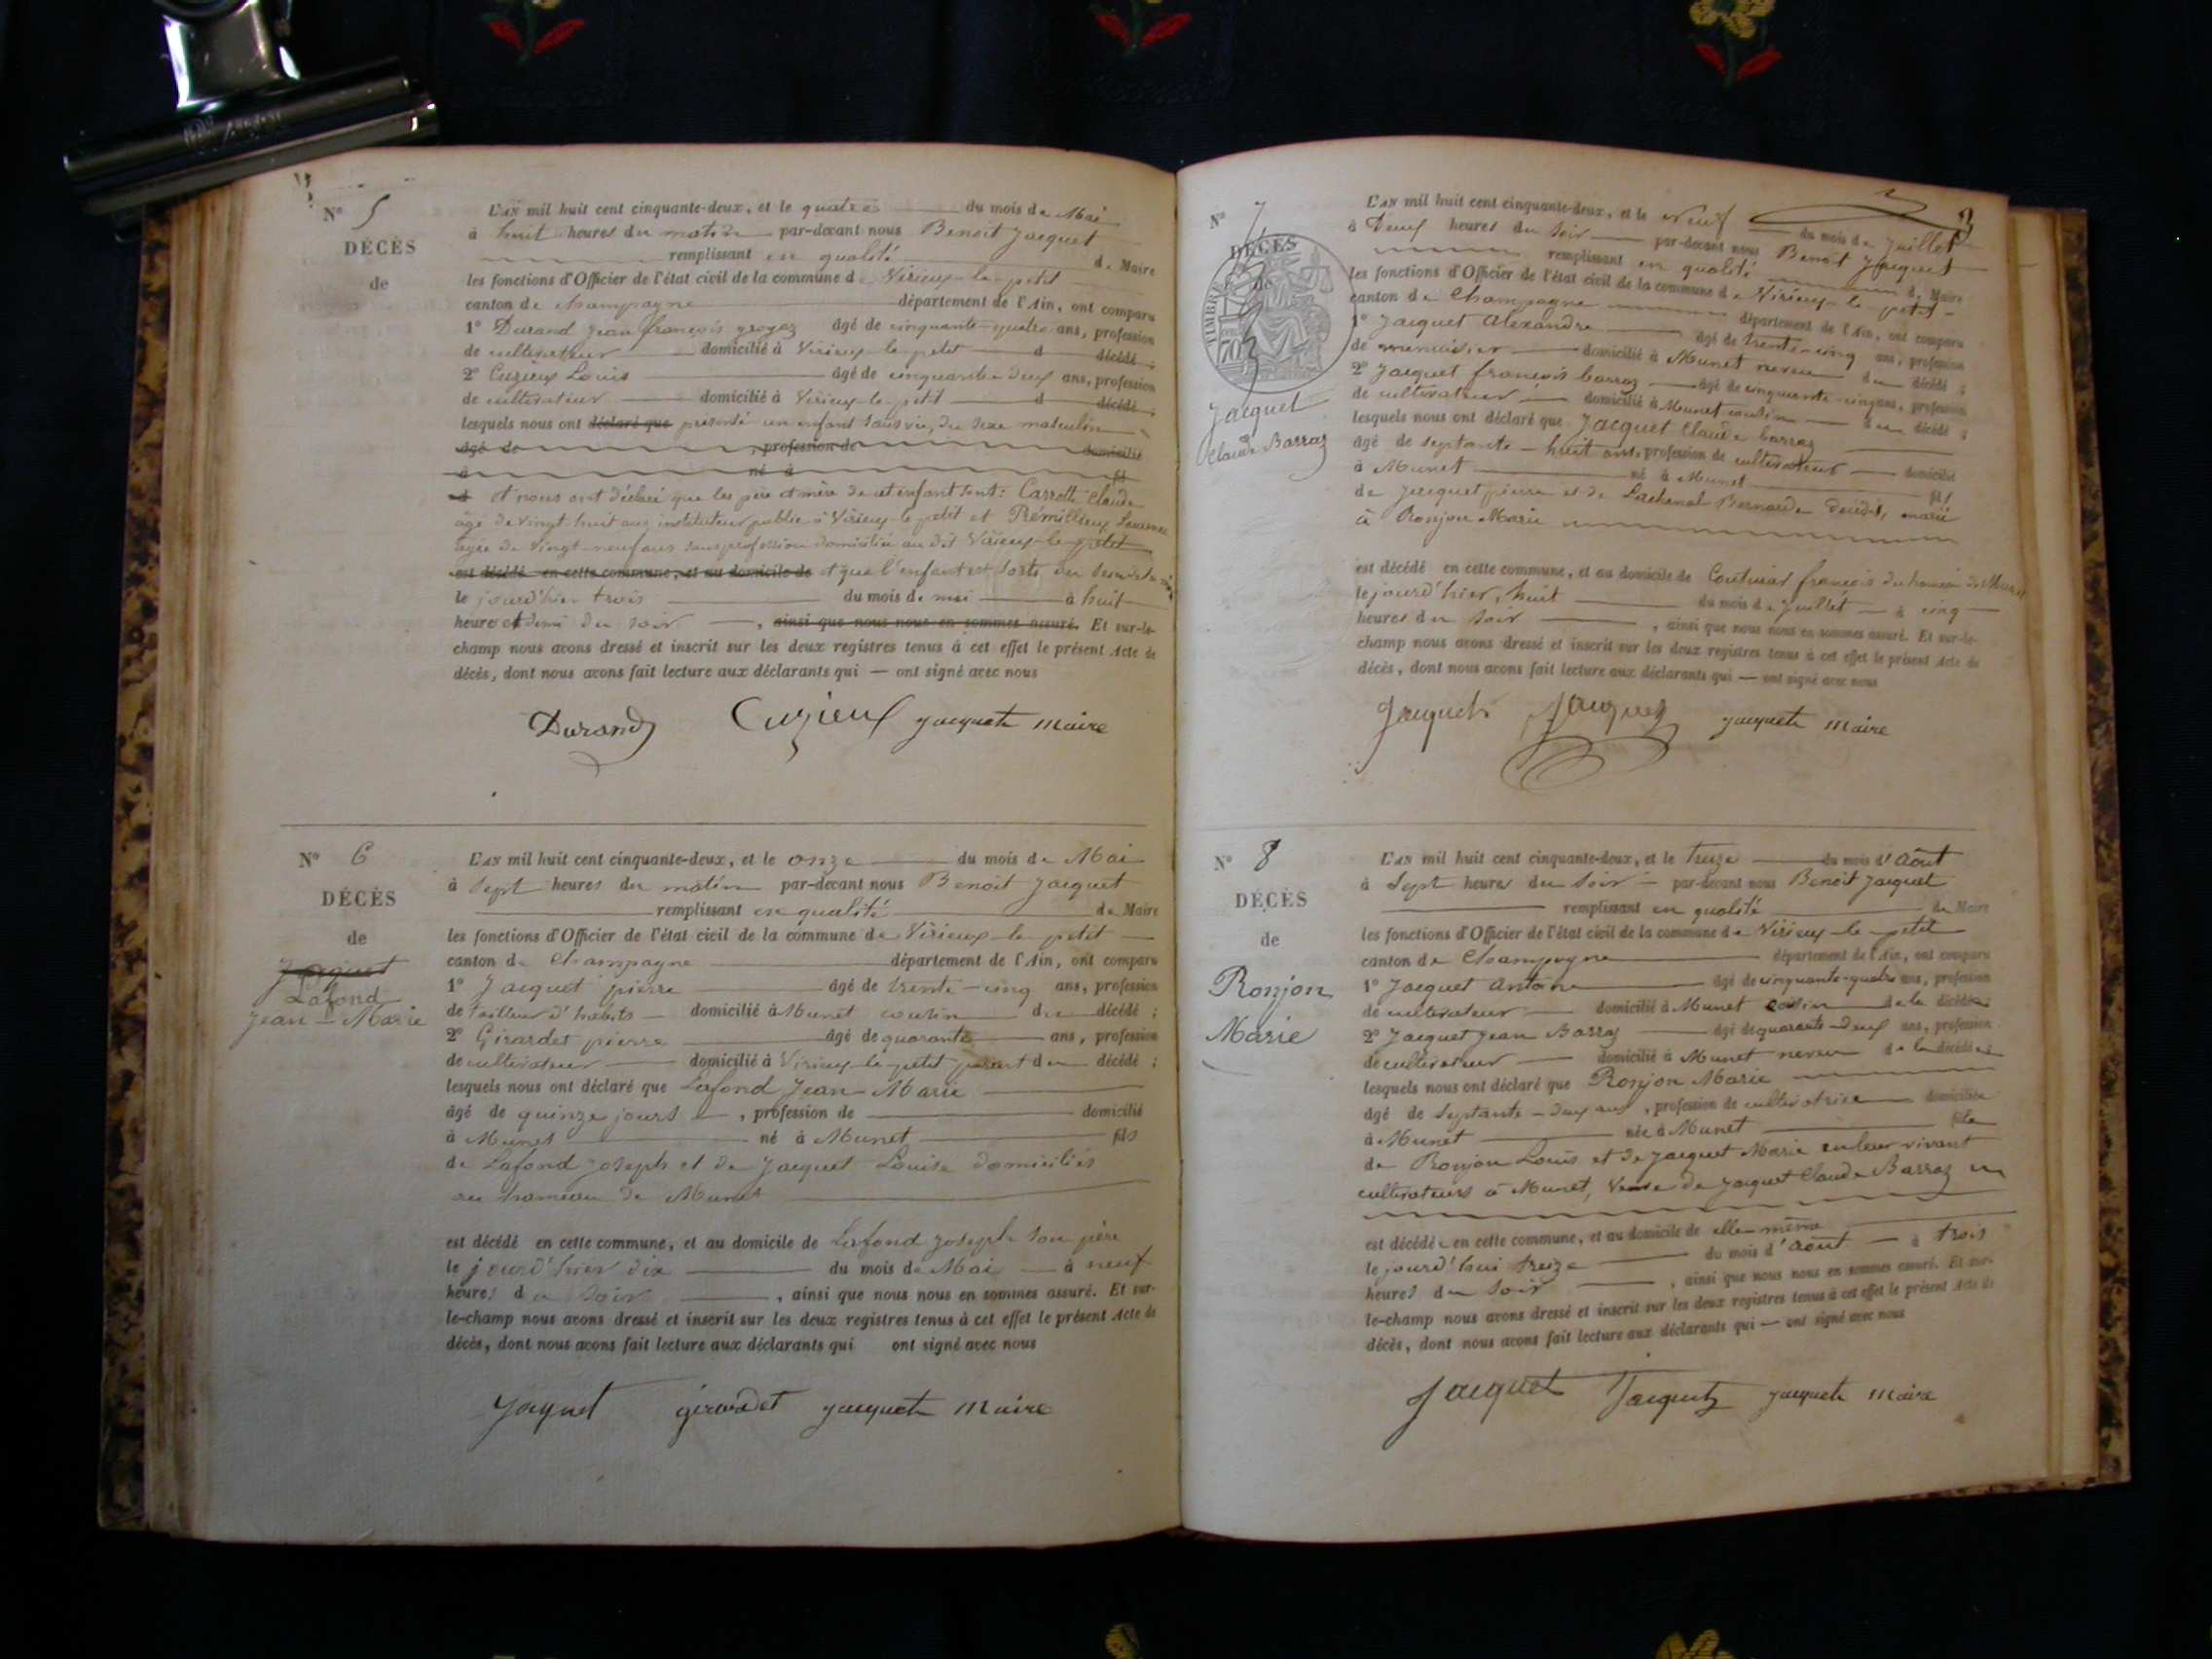 N° 5
DÉCÈS
de
L'AN mil huit cent cinquante-deux, et le quatre du mois de Mai
à huit heures du matin par-devant nous Benoit Jacquet
remplissant en qualité de Maire
les fonctions d'Officier de l'état civil de la commune de Virieux-le-petit
canton de Champagne département de l'Ain, ont comparu
1° Durand Jean françois âgé de cinquante-quatre ans, profession
de cultivateur domicilié à Virieux-le-petit d décédé ;
2° Cuzieux Louis âgé de cinquante-deux ans, profession
de cultivateur domicilié à Virieux-le-petit d décédé ;
lesquels nous ont déclaré que présenté un enfant sans vie, du sexe masculin
âgé de , profession de domicilié
à né à fil
d et nous ont déclaré que les père et mère de cet enfant sont : Carrotti Claude
âgé de vingt-huit ans instituteur public à Virieux-le-petit et Prémillieux Laurence
âgée de vingt-neuf ans sans profession domiciliée au dit Virieux-le-petit
est décédé en cette commune, et au domicile de et que l'enfant est sorti du sein de sa mère
le jourd'hier trois du mois de mai à huit
heures et demi du soir , ainsi que nous nous en sommes assuré. Et sur-le-
champ nous avons dressé et inscrit sur les deux registres tenus à cet effet le présent Acte de
décès, dont nous avons fait lecture aux déclarants qui — ont signé avec nous
Durand Cuzieux Jacquet maire
N° 6
DÉCÈS
de
Jacquet
Lafond
Jean-Marie
L'AN mil huit cent cinquante-deux, et le onze du mois de Mai
à Sept heures du matin par-devant nous Benoit Jacquet
remplissant en qualité de Maire
les fonctions d'Officier de l'état civil de la commune de Virieux-le-petit
canton de Champagne département de l'Ain, ont comparu
1° Jacquet pierre âgé de trente-cinq ans, profession
de tailleur d'habits domicilié à Munet cousin du décédé ;
2° Girardet pierre âgé de quarante ans, profession
de cultivateur domicilié à Virieux-le-petit parent du décédé ;
lesquels nous ont déclaré que Lafond Jean-Marie
âgé de quinze jours , profession de domicilié
à Munet né à Munet fils
de Lafond Joseph et de Jacquet Louise domiciliés
au hameau de Munet
est décédé en cette commune, et au domicile de Lafond Joseph son père
le jourd'hier dix du mois de Mai à neuf
heures du soir , ainsi que nous nous en sommes assuré. Et sur-
le-champ nous avons dressé et inscrit sur les deux registres tenus à cet effet le présent Acte de
décès, dont nous avons fait lecture aux déclarants qui ont signé avec nous
Jaquet girardet Jacquet maire
3
N° 7
DÉCÈS
de
TIMBRE
70
Jacquet
Claude Barraz
L'AN mil huit cent cinquante-deux, et le Neuf du mois de Juillet
à Deux heures du soir par-devant nous Benoit Jacquet
remplissant en qualité de Maire
les fonctions d'Officier de l'état civil de la commune de Virieux-le-petit
canton de Champagne département de l'Ain, ont comparu
1° Jacquet Alexandre âgé de trente-cinq ans, profession
de menuisier domicilié à Munet neveu du décédé ;
2° Jacquet françois barraz âgé de cinquante-cinq ans, profession
de cultivateur domicilié à Munet cousin du décédé ;
lesquels nous ont déclaré que Jacquet Claude barraz
âgé de septante-huit ans, profession de cultivateur domicilié
à Munet né à Munet fils
de Jacquet pierre et de Lachenal Bernarde décédés, marié
à Ronjon Marie
est décédé en cette commune, et au domicile de Couturier françois du hameau de Munet
le jourd'hier, huit du mois de Juillet à cinq
heures du soir , ainsi que nous nous en sommes assuré. Et sur-le-
champ nous avons dressé et inscrit sur les deux registres tenus à cet effet le présent Acte de
décès, dont nous avons fait lecture aux déclarants qui — ont signé avec nous
Jacquet Jacquet Jacquet maire
N° 8
DÉCÈS
de
Ronjon
Marie
L'AN mil huit cent cinquante-deux, et le treize du mois d'Août
à Sept heures du soir par-devant nous Benoit Jacquet
remplissant en qualité de Maire
les fonctions d'Officier de l'état civil de la commune de Virieux-le-petit
canton de Champagne département de l'Ain, ont comparu
1° Jacquet Antoine âgé de cinquante-quatre ans, profession
de cultivateur domicilié à Munet cousin de la décédée
2° Jacquet Jean Barraz âgé de quarante-deux ans, profession
de cultivateur domicilié à Munet neveu de la décédée
lesquels nous ont déclaré que Ronjon Marie
âgé de septante-deux ans , profession de cultivatrice domiciliée
à Munet née à Munet fille
de Ronjon Louis et de Jacquet Marie en leur vivant
cultivateurs à Munet, Veuve de Jacquet Claude Barraz
est décédée en cette commune, et au domicile de elle-même
le jourd'hui treize du mois d'août à trois
heures du soir , ainsi que nous nous en sommes assuré. Et sur-
le-champ nous avons dressé et inscrit sur les deux registres tenus à cet effet le présent Acte de
décès, dont nous avons fait lecture aux déclarants qui — ont signé avec nous
Jacquet Jacquet Jacquet maire